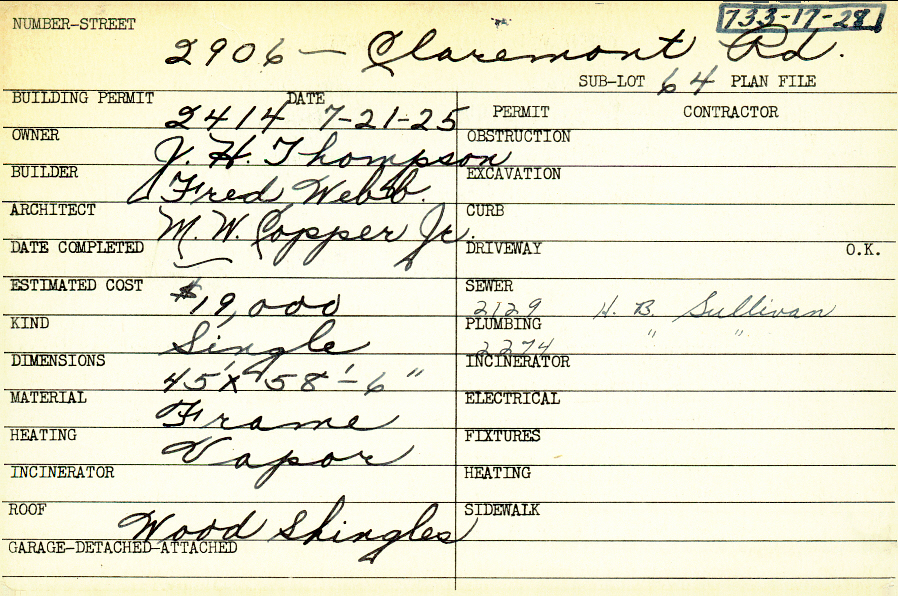 NUMBER-STREET 733-17-28
2906 — Claremont Rd.
SUB-LOT 64 PLAN FILE
BUILDING PERMIT 2414 DATE 7-21-25 PERMIT CONTRACTOR
OWNER J. H. Thompson OBSTRUCTION
BUILDER Fred Webb. EXCAVATION
ARCHITECT M. W. Copper Jr. CURB
DATE COMPLETED DRIVEWAY O.K.
ESTIMATED COST $19,000 SEWER 2129 H. B. Sullivan
KIND Single PLUMBING 2274 " "
DIMENSIONS 45' x 58'-6" INCINERATOR
MATERIAL Frame ELECTRICAL
HEATING Vapor FIXTURES
INCINERATOR HEATING
ROOF Wood Shingles SIDEWALK
GARAGE-DETACHED-ATTACHED